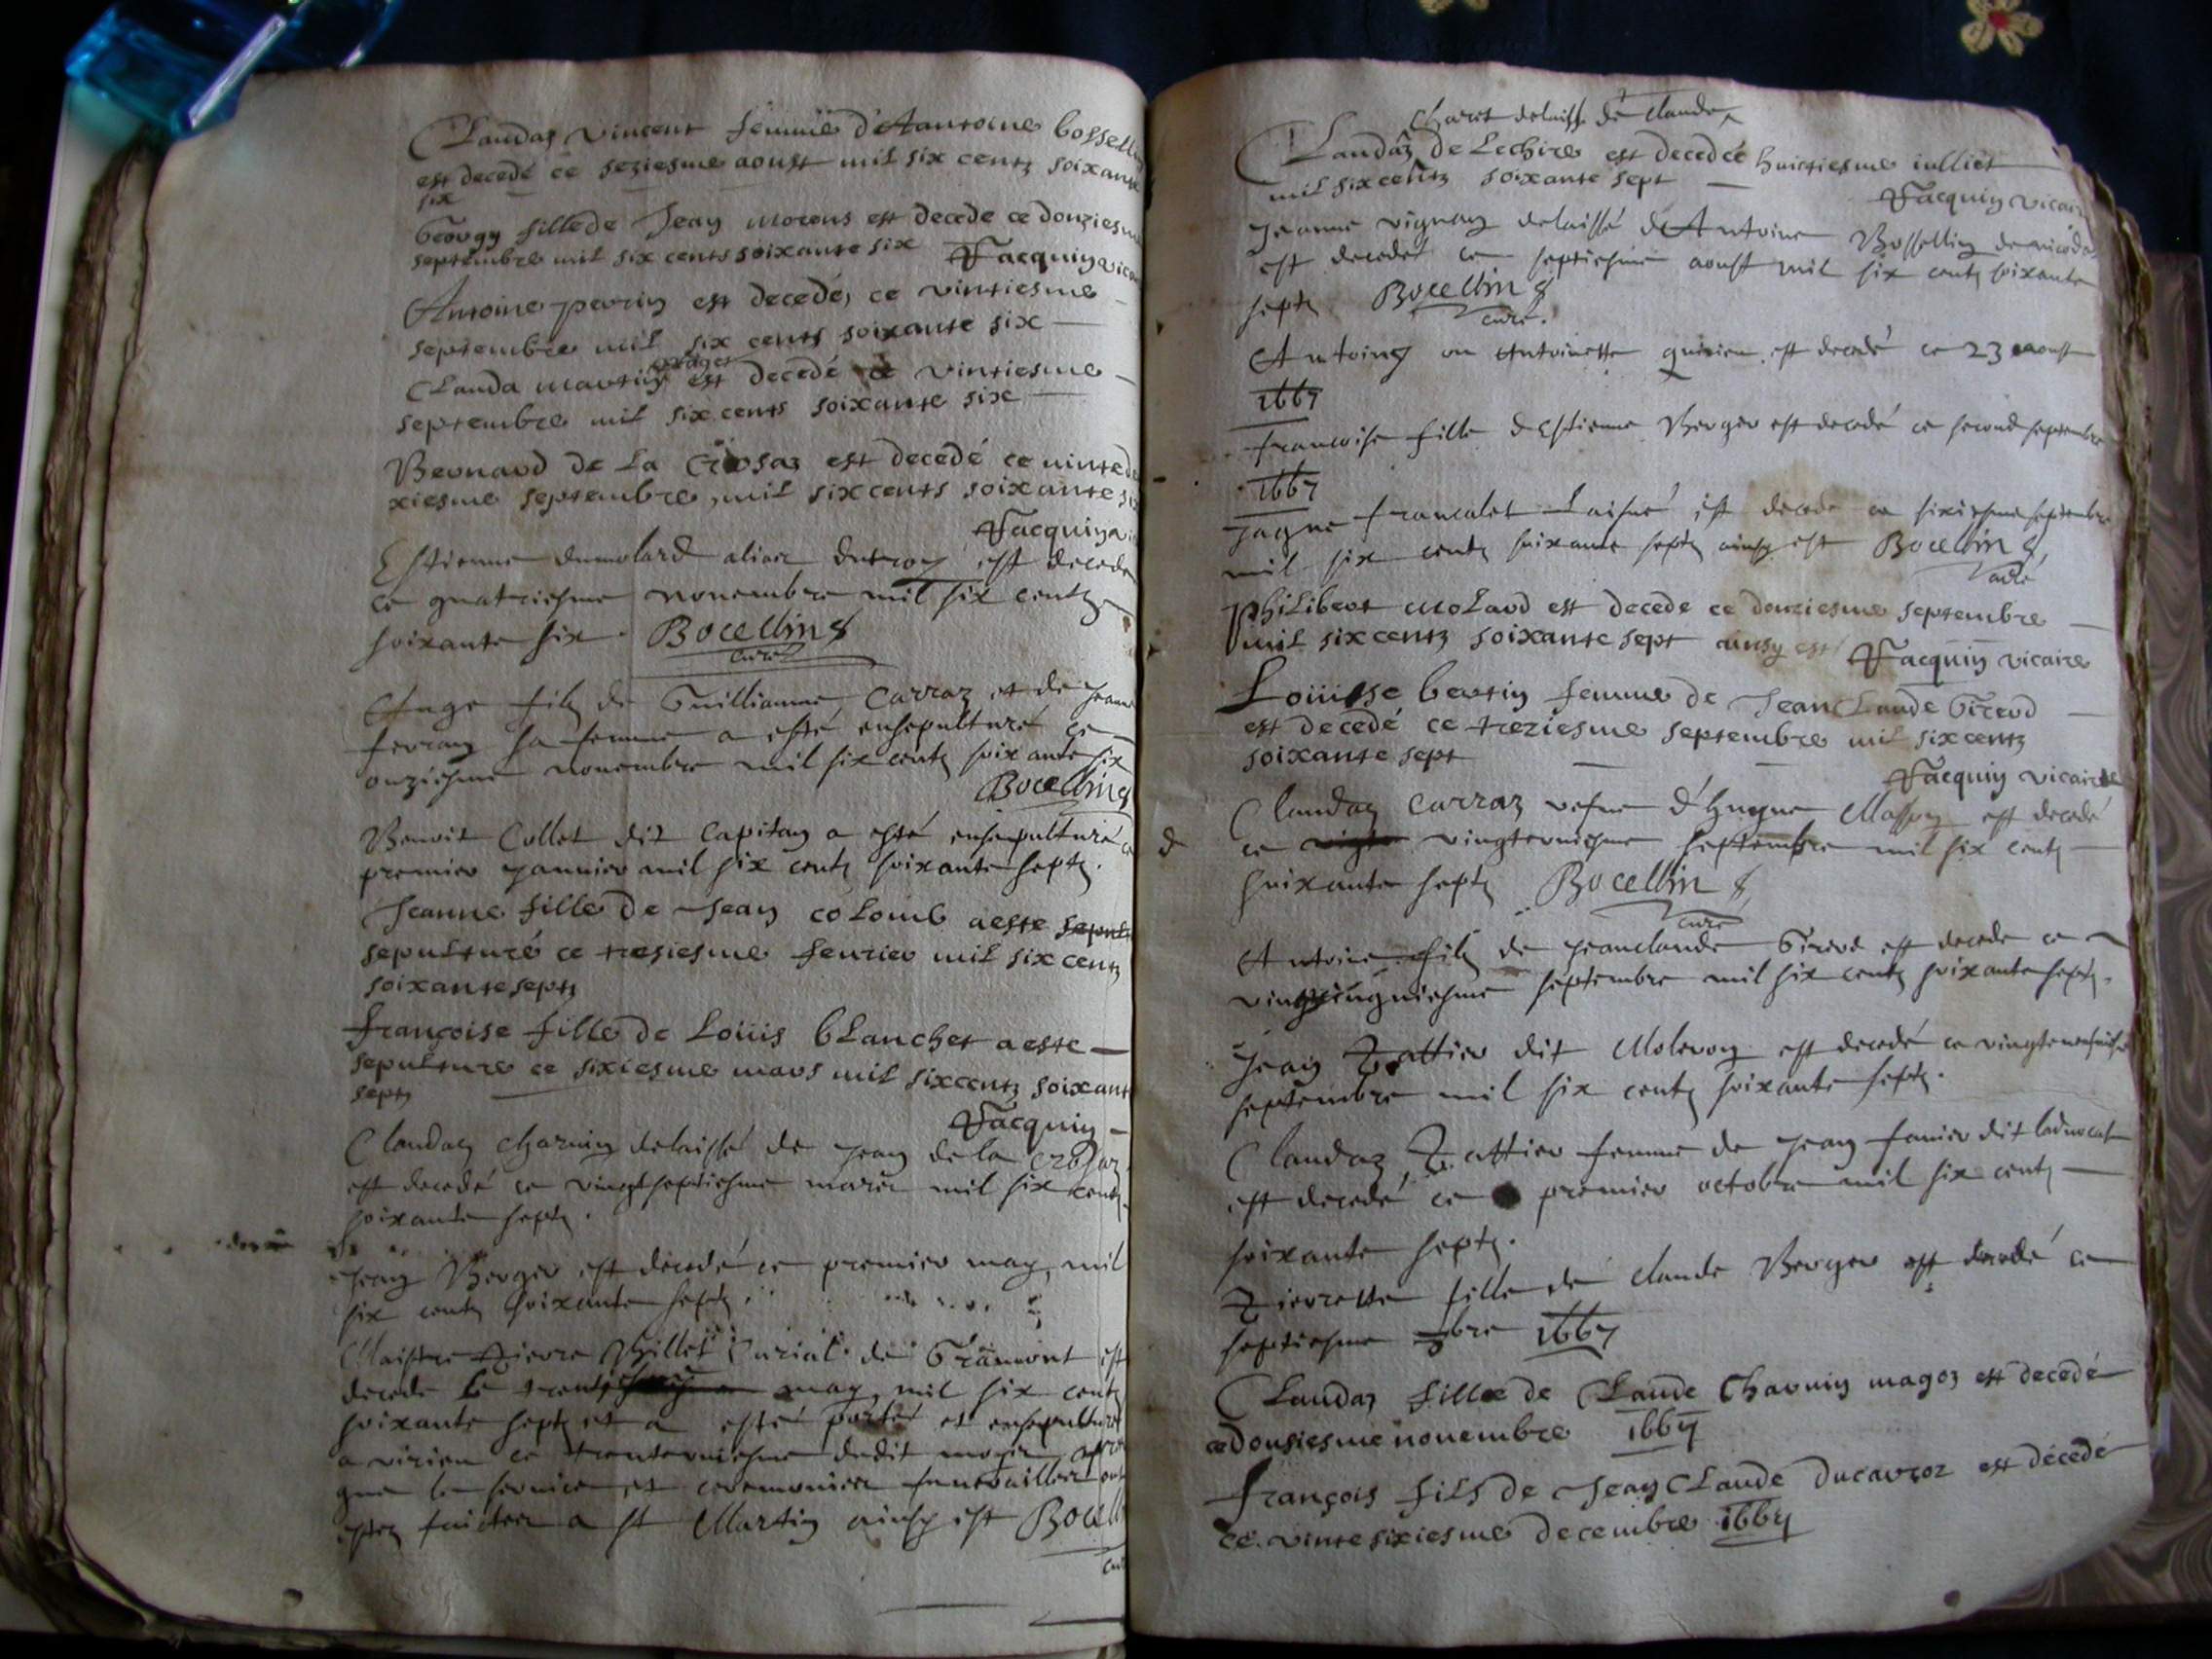 Claudaz Vincent femme d'Aantoine bossellin
est decedé ce seziesme aoust mil six centz soixante
six
Georgy fille de Jean morens est decede ce douziesme
septembre mil six cents soixante six Jacquin vicaire
Antoine perrin est decedé, ce vintiesme
septembre mil six cents soixante six
Clauda martin est decedé ce vintiesme
septembre mil six cents soixante six
Bernard de La Crosaz est decedé ce vinte
xiesme septembre, mil six cents soixante six
Jacquin
Estienne dumolard alias dutroy est decede
ce quatriesme novembre mil six centz
soixante six. Bocellin
curé
Ange filz de Guilliaume Carraz et de Jeanne
ferran sa femme a esté ensepulturé ce
onziesme novembre mil six centz soixante six
Bocellin
Benoit Collet dit Capitan a esté ensepulturé ce
premier janvier mil six centz soixante septz.
Jeanne fille de Jean colomb a este
sepulturé ce tresiesme fevrier mil six centz
soixante septz
françoise fille de Loüis bLanchet a este
sepulture ce sixiesme mars mil six centz soixante
septz
Jacquin
Claudaz charvin delaissé de Jean de la crosaz
est decedé ce vingtseptiesme mars mil six centz
soixante septz.
Jean Berger est decedé ce premier may, mil
six centz soixante septz.
Maistre Pierre Billet Curial de Gramont est
decede le may mil six centz
soixante septz et a esté porté et ensepulturé
a virieu ce trenteuniesme dudit moys apres
que le service et ceremonies funerailles ont
estez faictes a st Martin ainsy est Bocellin
Charet delaissé de claude
Claudaz de Lechire est decedée huictiesme iulliet
mil six centz soixante sept
Jacquin vicaire
Jeanne vignan delaissé d'Antoine Bossellin
est decedée ce septiesme aoust mil six centz soixante
septz Bocellin
curé.
Antoine ou Antoinette est decedé ce 23 aoust
1667
francoise fille d'Estienne Berger est decedé ce second septembre
1667
Jaque francalet Laisné est decede ce sixiesme septembre
mil six centz soixante septz ainsy est Bocellin
curé
Philibert moLard est decede ce douziesme septembre
mil six centz soixante sept ainsy est Jacquin vicaire
Loüisse bertin femme de Jean CLaude Girerd
est decedé ce treziesme septembre mil six centz
soixante sept
Jacquin vicaire
Claudaz Carraz vefue d'hugue Masson est decedé
ce vingteuniesme septembre mil six centz
soixante septz Bocellin
curé
Antoine filz de Jeanclaude Girerd est decede ce
septembre mil six centz soixante septz.
Jean Battier dit Moleron est decedé ce
septembre mil six centz soixante septz.
Claudaz Battier femme de Jean famier dit ladvocat
est decedé ce premier octobre mil six centz
soixante septz.
Pierrette fille de claude Berger est decedé ce
septiesme bre 1667
CLaudaz fille de CLaude Charvin magoz est decedé
ce dousiesme novembre 1667
françois fils de Jean CLaude ducarroz est décedé
ce vinte sixiesme decembre 1667